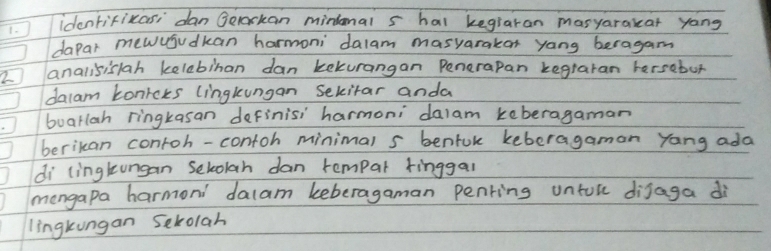 1. identifikasi dan Jelaskan minimal 5 hal kegiatan masyarakat yang
dapat mewujudkan harmoni dalam masyarakat yang beragam
2 analisislah kelebihan dan kekurangan Penerapan kegiatan tersebut
dalam konteks lingkungan sekitar anda
buatlah ringkasan definisi harmoni dalam keberagaman
berikan contoh - contoh minimal 5 bentuk keberagaman yang ada
di lingkungan sekolah dan tempat tinggal
mengapa harmoni dalam keberagaman penting untuk dijaga di
lingkungan sekolah